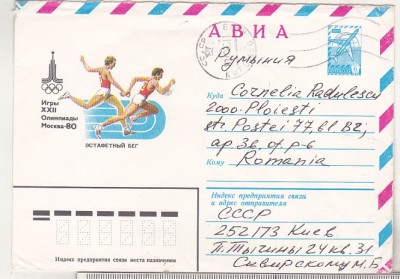 АВИА
Румыния
СССР
Игры
XXII
Олимпиады
Москва-80
ЭСТАФЕТНЫЙ БЕГ
Куда Cornelia Radulescu
2000-Ploiești
str. Postei 77, bl B2,
ap. 36. of. p-6
Кому Romania
Индекс предприятия связи
и адрес отправителя
СССР
252173 Киев
П. Тычины 24 кв. 31
Сивирскому М. Б.
Индекс предприятия связи места назначения